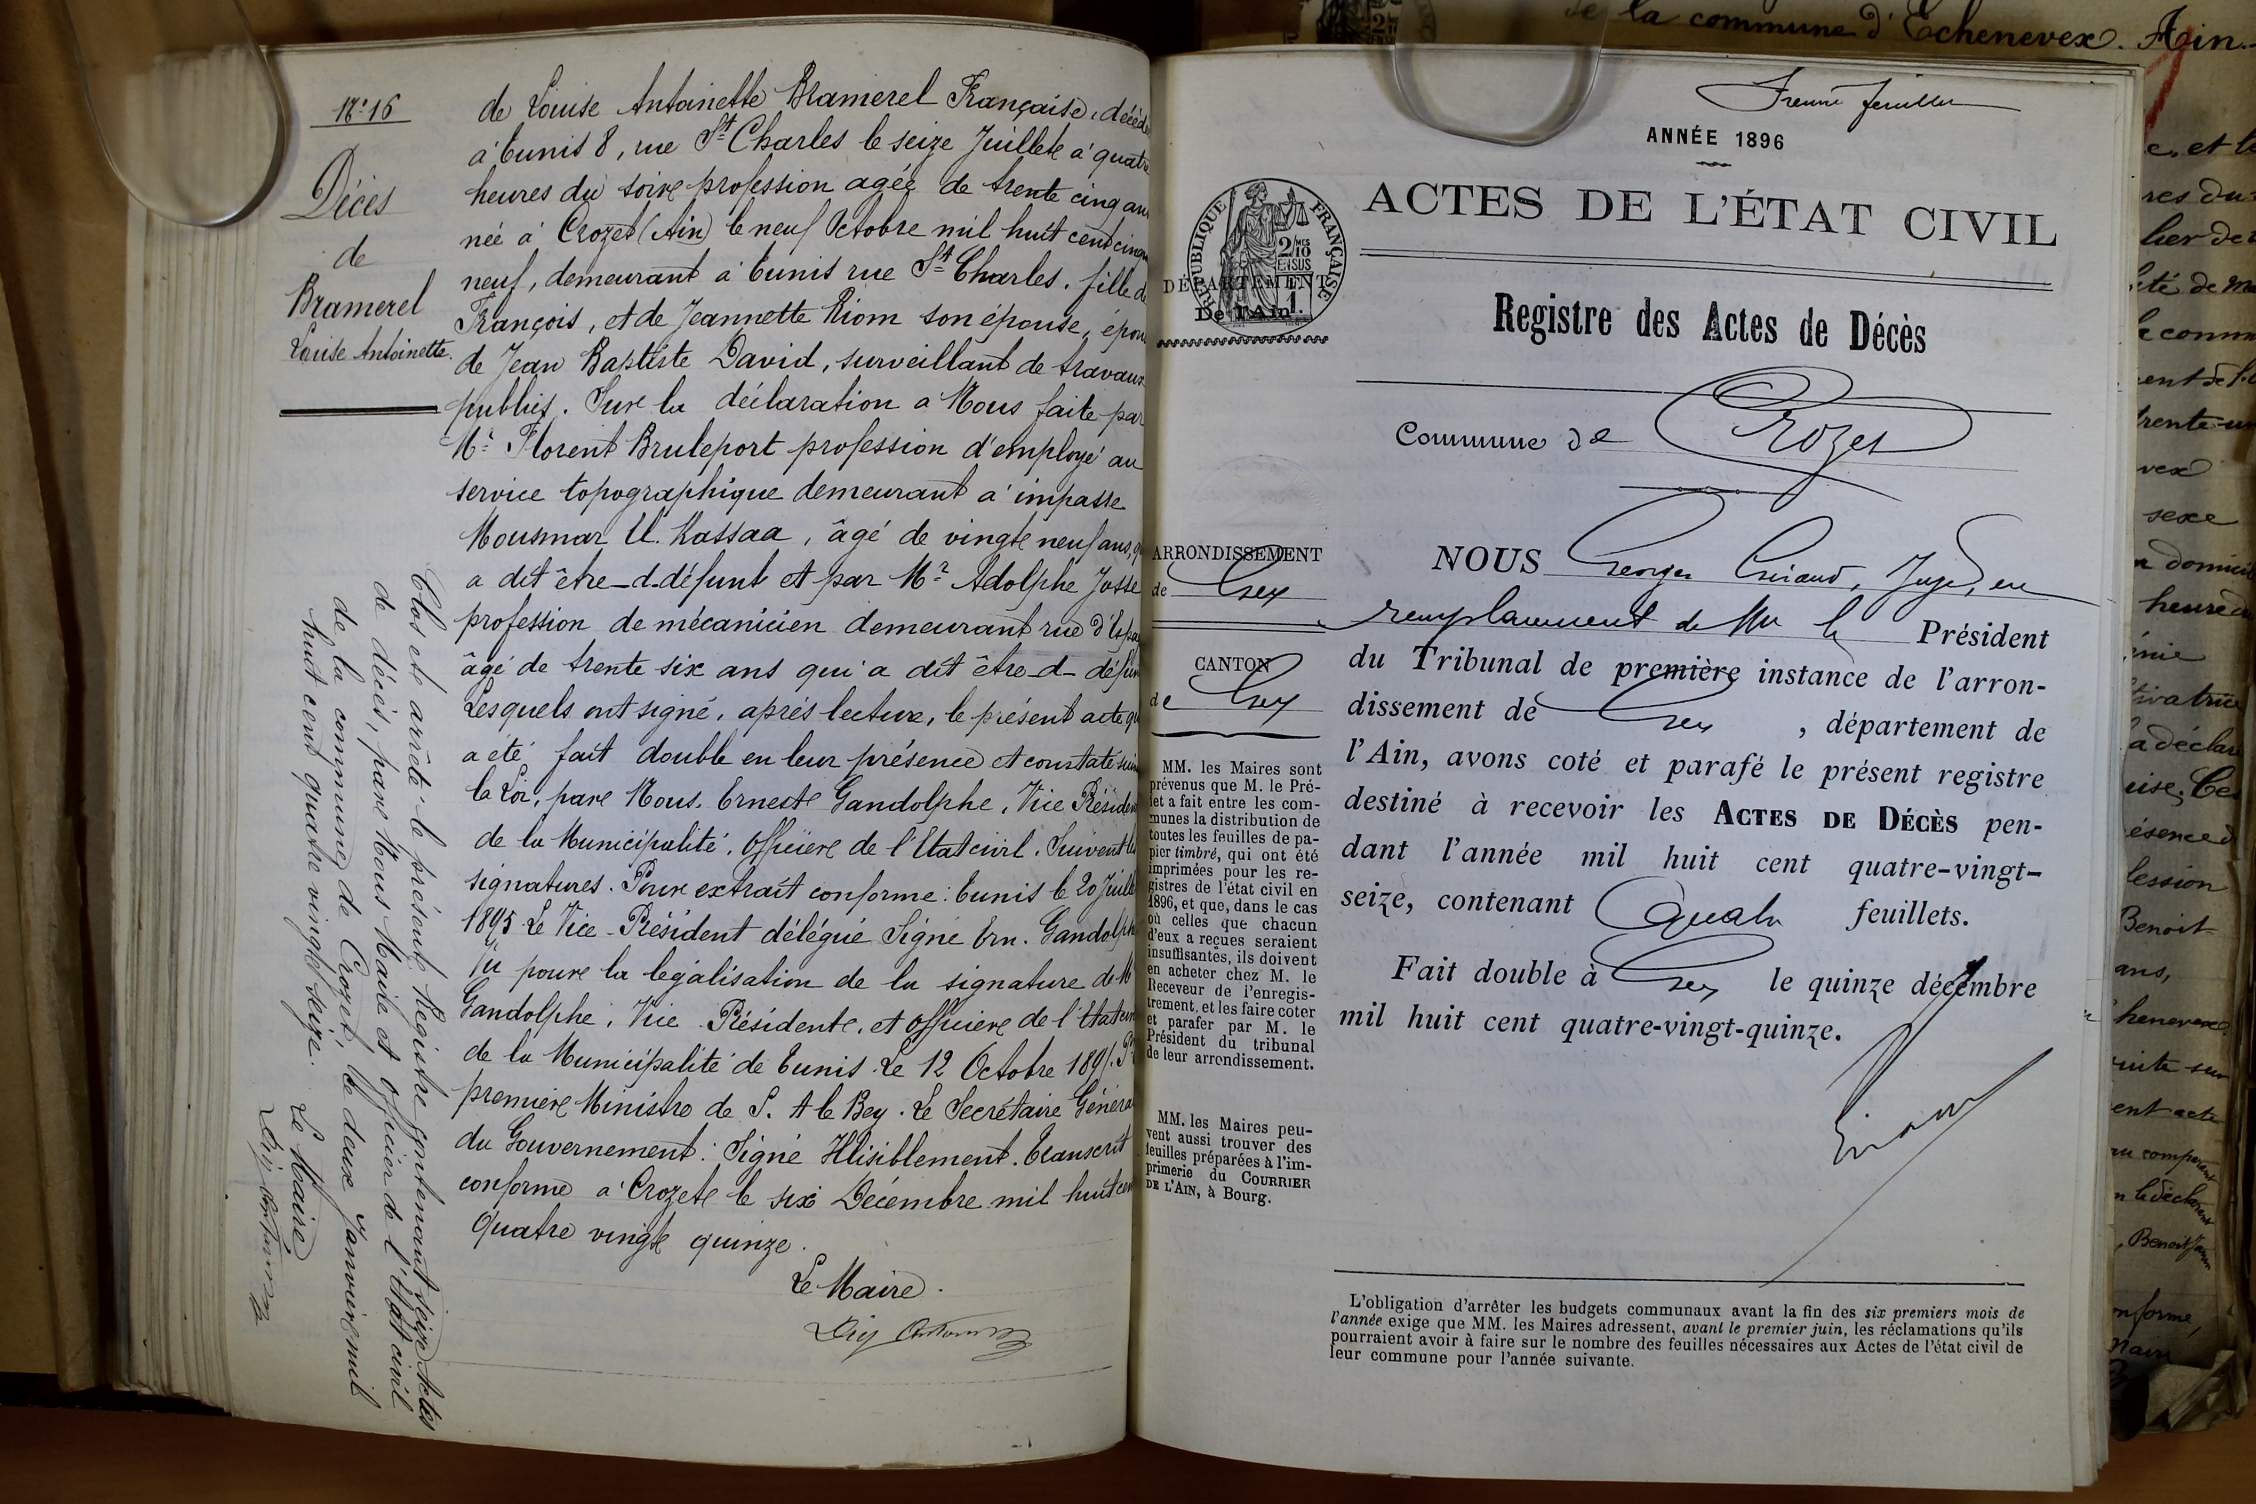 N° 16
Décès
de
Bramerel
Louise Antoinette.
de Louise Antoinette Bramerel Française, décédée
à Tunis 8, rue St Charles le seize Juillet à quatre
heures du soire profession agée de trente cinq ans
née à Crozet (Ain) le neuf Octobre mil huit cent cinqu
neuf, demeurant à Tunis rue St Charles. fille de
François, et de Jeannette Riom son épouse, épouse
de Jean Baptiste David, surveillant de travaux
publics. Sur la déclaration a Nous faite par
Mr Florent Bruleport profession d'employé au
service topographique demeurant à impasse
Mousmar El Kassaa, âgé de vingt neuf ans, q
a dit être _d_ défunt et par Mr Adolphe Josse
profession de mécanicien demeurant rue d'Espa
âgé de trente six ans qui a dit être _d_ défun
Lesquels ont signé, après lecture, le présent acte qu
a été fait double en leur présence et constaté suiv
la Loi, pare Nous. Erneste Gandolphe, Vice Présiden
de la Municipalité, Officiere de l'Etat civil. Suivent les
signatures. Pour extrait conforme: Tunis le 20 Juillet
1895 Le Vice-Président délégué Signé Ern. Gandolphe
Vu poure la légalisation de la signature de M
Gandolphe, Vice Présidente, et officiere de l'Etat civ
de la Municipalité de Tunis. Le 12 Octobre 189
premiere Ministre de S. A le Bey. Le Secrétaire Généra
du Gouvernement: Signé Illisiblement. Transcrit
conforme à Crozet le six Décembre mil huit cen
quatre vingt quinze.
Le Maire.
Clos et arrêté le présent Registre contenant seize Actes
de décès, pare Nous Maire et officier de l'Etat civil
de la commune de Crozet, le deux Janvier mil
huit cent quatre vingt seize. Le Maire
de la commune d'Echenevex. Ain.
feuillet
ANNÉE 1896
ACTES DE L'ÉTAT CIVIL
RÉPUBLIQUE FRANÇAISE
2/10 MES
EN SUS
DÉPARTEMENT
De l'Ain
1.
Registre des Actes de Décès
Commune de Crozet
ARRONDISSEMENT
de Gex
CANTON
de Gex
MM. les Maires sont
prévenus que M. le Pré-
fet a fait entre les com-
munes la distribution de
toutes les feuilles de pa-
pier timbré, qui ont été
imprimées pour les re-
gistres de l'état civil en
1896, et que, dans le cas
où celles que chacun
d'eux a reçues seraient
insuffisantes, ils doivent
en acheter chez M. le
Receveur de l'enregis-
trement, et les faire coter
et parafer par M. le
Président du tribunal
de leur arrondissement.
MM. les Maires peu-
vent aussi trouver des
feuilles préparées à l'im-
primerie du COURRIER
DE L'AIN, à Bourg.
NOUS Georges Giraud, Juge, en
remplacement de Mr le Président
du Tribunal de première instance de l'arron-
dissement de Gex, département de
l'Ain, avons coté et parafé le présent registre
destiné à recevoir les ACTES DE DÉCÈS pen-
dant l'année mil huit cent quatre-vingt-
seize, contenant Quatre feuillets.
Fait double à Gex le quinze décembre
mil huit cent quatre-vingt-quinze.
Giraud
L'obligation d'arrêter les budgets communaux avant la fin des six premiers mois de
l'année exige que MM. les Maires adressent, avant le premier juin, les réclamations qu'ils
pourraient avoir à faire sur le nombre des feuilles nécessaires aux Actes de l'état civil de
leur commune pour l'année suivante.